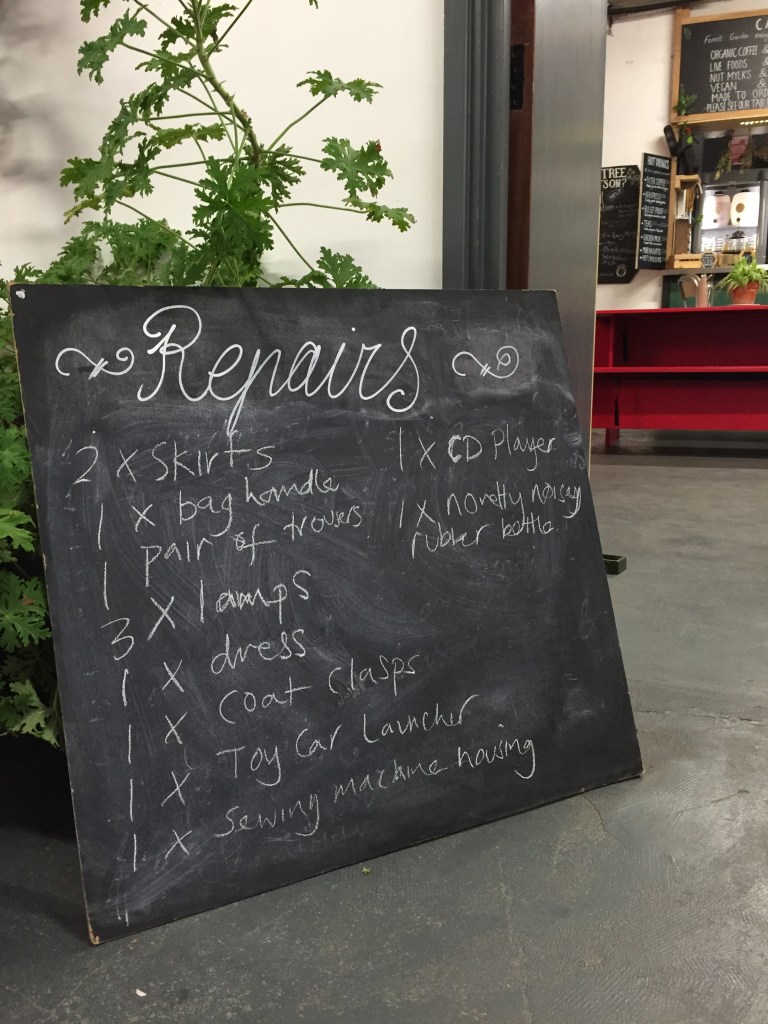 Repairs
2 x skirts
1 x bag handle
1 pair of trousers
3 x lamps
1 x dress
1 x coat clasps
1 x Toy Car Launcher
1 x Sewing machine housing
1 x CD Player
1 x
rubber bottle
ORGANIC COFFEE &
LIVE FOODS &
NUT MYLKS &
VEGAN &
MADE TO ORD
PLEASE SEE OUR TABL
TREE
SON?
HOT DRINKS